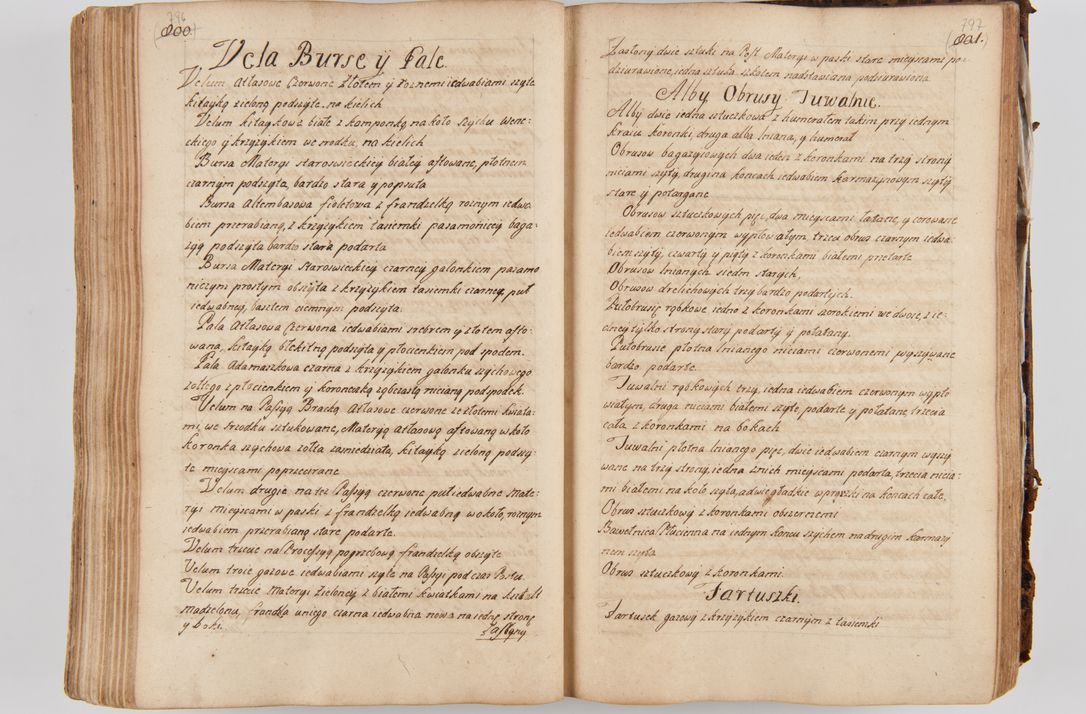 796
800.
Vela Burse ÿ Pale
Velum Atłasowe Czerwone Złotem ÿ Roznemi iedwabiami szyte
kitayką zieloną podszyte na kielich
Velum kitaykowe białe z kamponką na koło szychu wene-
ckiego ÿ krzyżykiem we srodku, na kielich
Bursa Materyi staroswieckiey białey aftowane, płotnem
czarnym podszyta, bardzo stara y popsuta
Bursa Altembasowa fioletowa z frandzelką roznym iedwa-
biem przerabianą, z krzyżykiem tasiemki pasamoniczey baga-
zyą podszyta bardzo stara podarta
Bursa Materyi Staroswieckiey czarney galonkiem pasamo
niczym prostym obszyta z krzyżykiem tasiemki czarney, puł
iedwabney, Rasztem ciemnym podszyta
Pala Atłasowa Czerwona iedwabiami srebrem y złotem afto-
wana, kitayką błekitną podszyta y płocienkiem pod spodem.
Pala Adamaszkowa czarna z krzyżykiem galonku szychowego
zołtego z płocienkiem y koroneczką zgbczastą nicianą pod spodek.
Velum na Passyą Bracką Atłasowe czerwone ze złotemi kwiata-
mi, we srzodku sztukowane, Materyą atłasową aftowaną w koło
koronka szychowa zołta zamiedziała, kitayką zieloną podszy-
te mieyscami poprzecierane
Velum drugie na tez Passyą czerwone puł iedwabne Mate-
ryi mieyscami w paski z frandzelką iedwabną wokoło, roznym
iedwabiem przerabianą stare podarte.
Velum trzecie na Processyą pogrzebową frandzelką obszyte
Velum troie gazowe iedwabiami szyte na Passyi pod czas Postu
Velum trzecie Materyi zieloney z białemi kwiatkami na
madzelonu, frandla uniego czarna iedwabna nowa na iednę stronę
y boki.
Zasłony
797
801.
Zasłony dwie sztuki na Post Materyi w paski stare mieyscami po-
dziurawione, iedna sztuka szkłem nadstawiana podziurawiona
Alby Obrusy Tuwalnie.
Alby dwie iedna sztuczkowa z humerałem takim przy iednym
kraiu koronki, druga alba lniana, y humerał
Obrusow bagazyiowych dwa ieden z koronkami na trzy strony
niciami szyty, drugi na koncach iedwabiem karmazynowym szyty
stare y potargane
Obrusow sztuczkowych pięc, dwa mieyscami łatane, y cerowane
iedwabiem czerwonym wypłowiałym, trzeci obrus czarnym iedwa-
biem szyty, czwarty y piąty z koronkami białemi przetarte
Obrusow lnianych siedm starych,
Obrusow drelichowych trzy bardzo podartych.
Pułobrusie rąbkowe iedno z koronkami szerokiemi we dwoie, z ie-
dney tylko strony stary podarty y połatany.
Pułobrusie płotna lnianego niciami czerwonemi wyszywane
bardzo podarte.
Tuwalni rąbkowych trzy, iedna iedwabiem czerwonym wypło
wiałym, druga niciami białemi szyte, podarte y połatane, trzecia
cała z koronkami na bokach
Tuwalni płotna lnianego pięc, dwie iedwabiem czarnym wyszy
wane na trzy strony, iedna z nich mieyscami podarta, trzecia nicia-
mi białemi na koło szyta, a dwie gładkie w prążki na koncach całe.
Obrus sztuczkowy z koronkami obszernemi
Bawełnica Płocienna na iednym koncu szychem na drugim karmazy
nem szyta
Obrus sztuczkowy z koronkami.
Fartuszki.
Fartusek gazowy z krzyżykiem czarnym z tasiemki